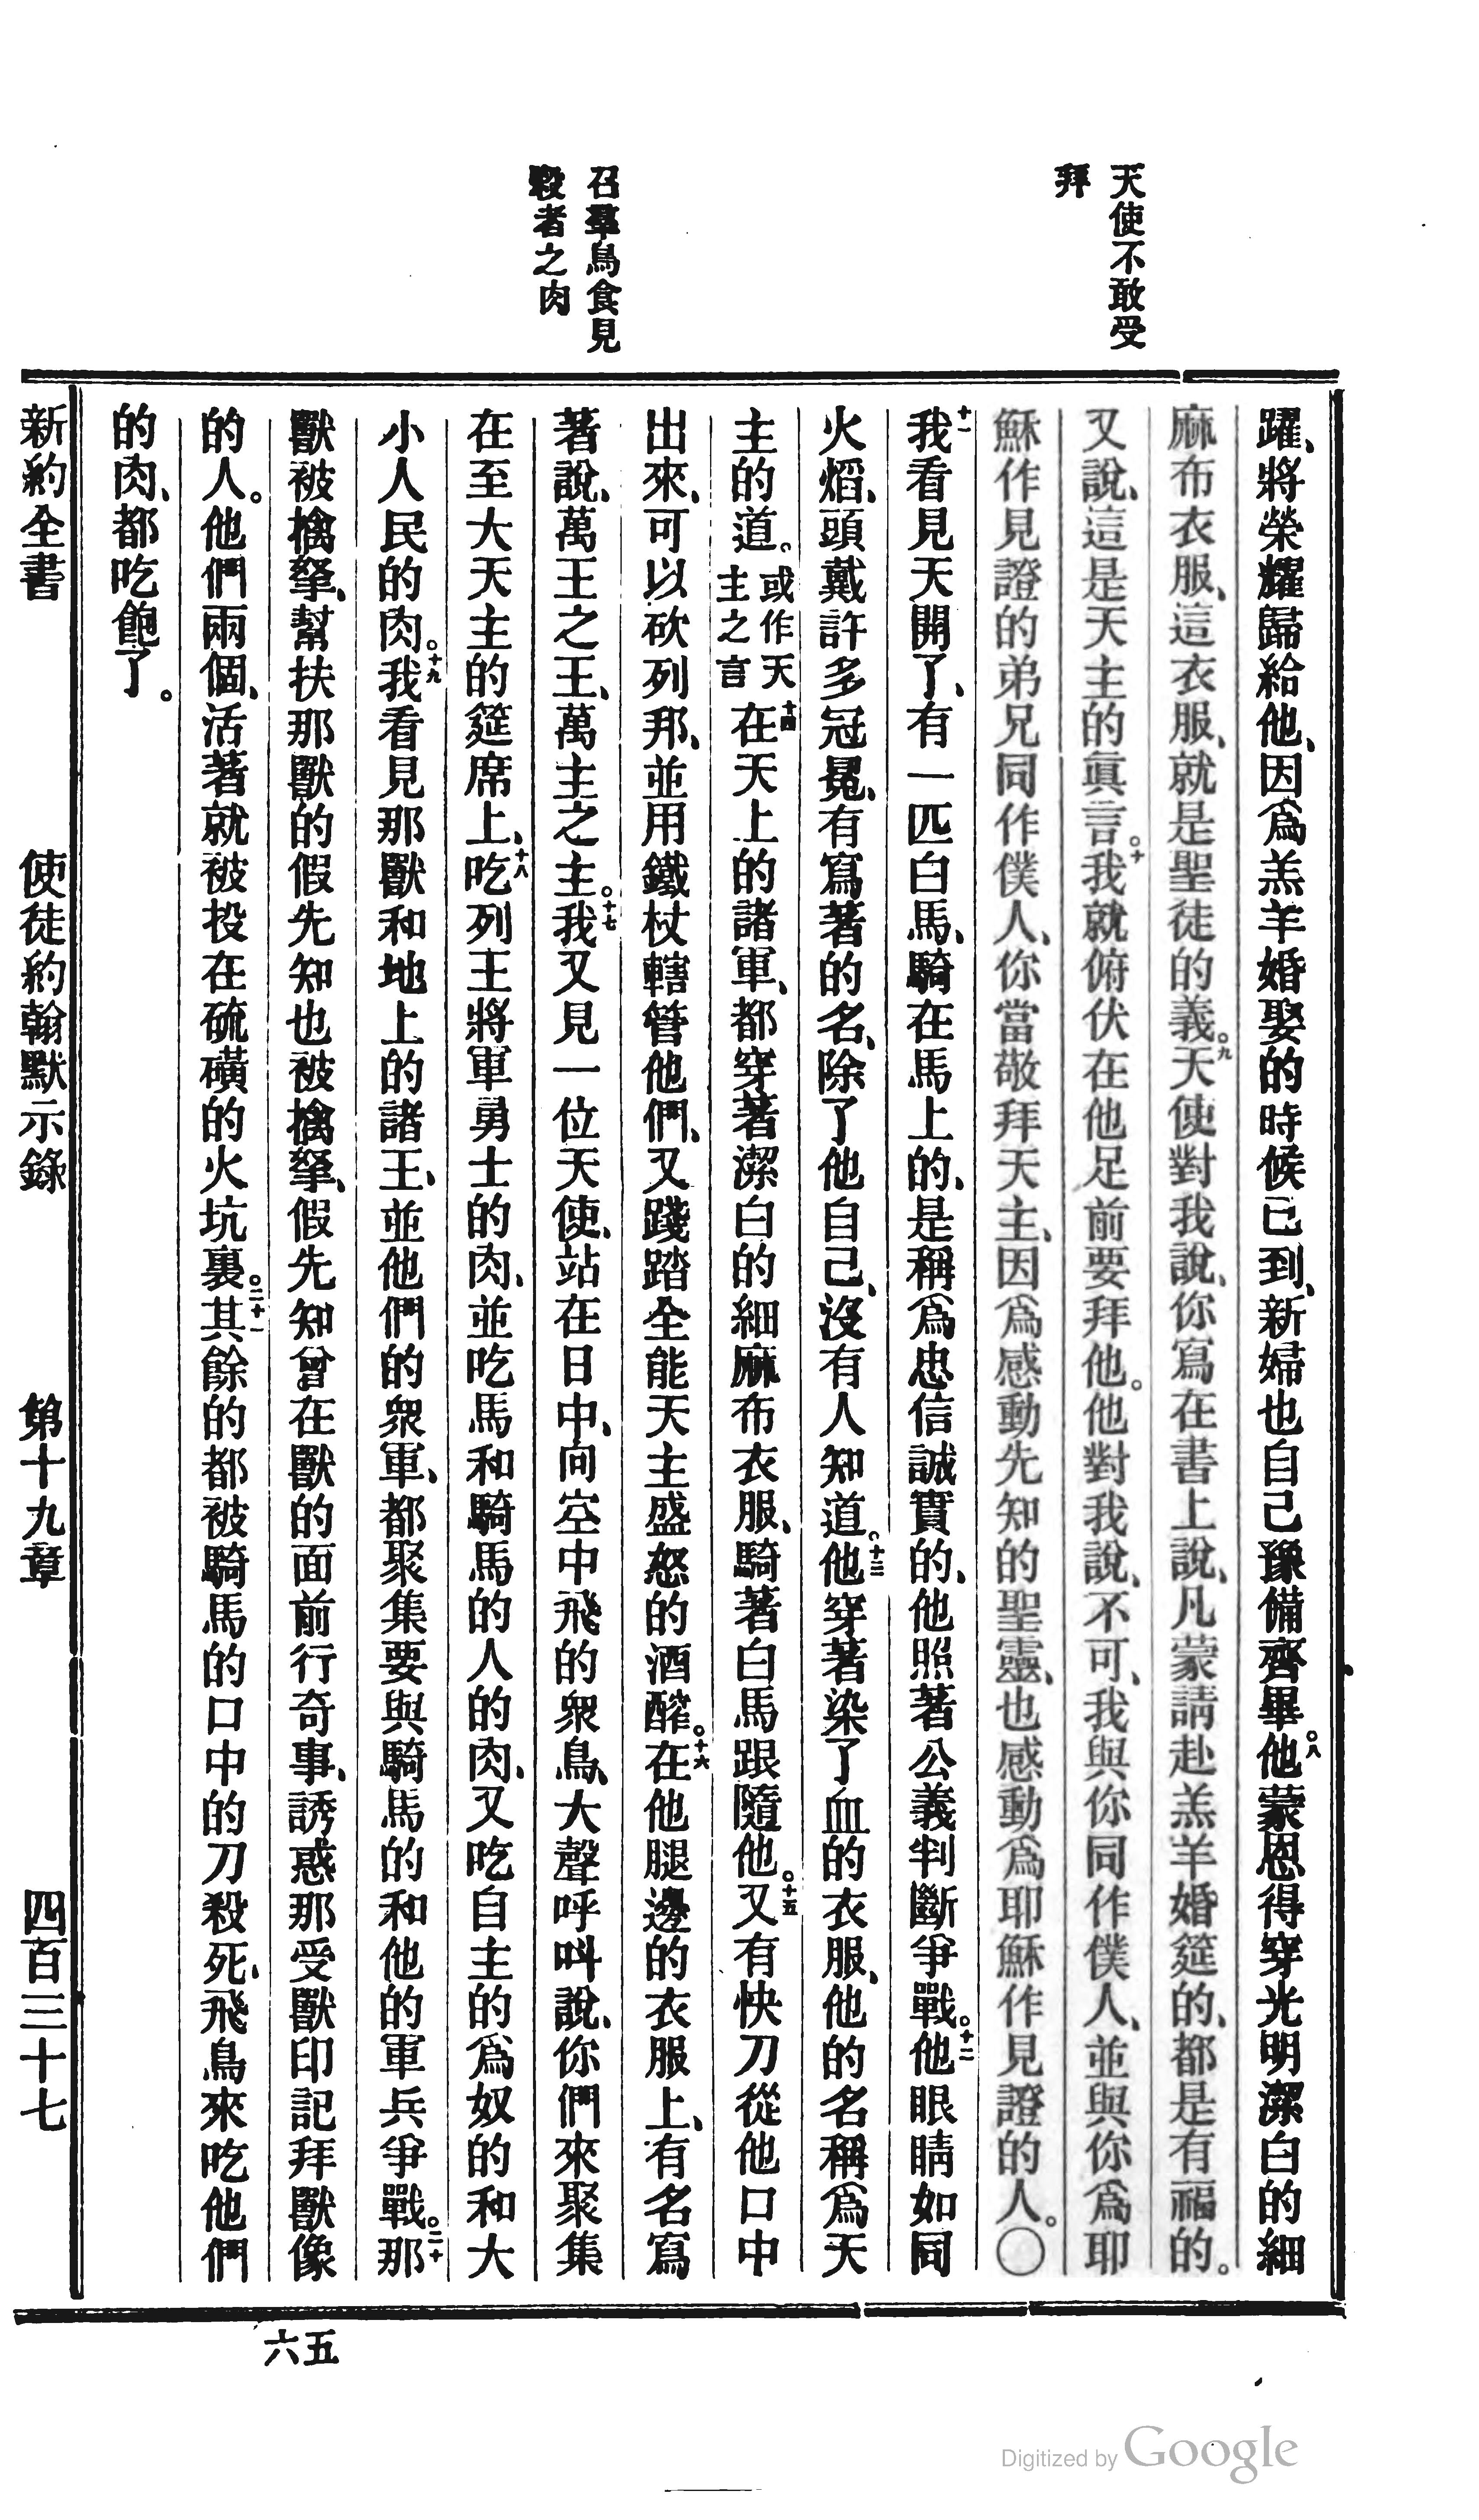 天使不敢受
拜
召羣鳥食見
殺者之肉
躍、將榮耀歸給他、因爲羔羊婚娶的時候已到、新婦也自己豫備齊畢。八他蒙恩得穿光明潔白的細
麻布衣服、這衣服、就是聖徒的義。九天使對我說、你寫在書上說、凡蒙請赴羔羊婚筵的、都是有福的。
又說、這是天主的眞言。十我就俯伏在他足前要拜他。他對我說、不可、我與你同作僕人、並與你爲耶
穌作見證的弟兄同作僕人、你當敬拜天主、因爲感動先知的聖靈、也感動爲耶穌作見證的人。〇
十一我看見天開了、有一匹白馬、騎在馬上的、是稱爲忠信誠實的、他照著公義判斷爭戰。十二他眼睛如同
火熖、頭戴許多冠冕、有寫著的名、除了他自己、沒有人知道。十三他穿著染了血的衣服、他的名稱爲天
主的道。或作天主之言十四在天上的諸軍、都穿著潔白的細麻布衣服、騎著白馬跟隨他。十五又有快刀從他口中
出來、可以砍列邦、並用鐵杖轄管他們、又踐踏全能天主盛怒的酒醡。十六在他腿邊的衣服上、有名寫
著說、萬王之王、萬主之主。十七我又見一位天使、站在日中、向空中飛的衆鳥、大聲呼叫說、你們來聚集
在至大天主的筵席上、十八吃列王將軍勇士的肉、並吃馬和騎馬的人的肉、又吃自主的爲奴的和大
小人民的肉。十九我看見那獸和地上的諸王、並他們的衆軍、都聚集要與騎馬的和他的軍兵爭戰。二十那
獸被擒拏、幫扶那獸的假先知也被擒拏、假先知曾在獸的面前行奇事、誘惑那受獸印記拜獸像
的人。他們兩個、活著就被投在硫磺的火坑裏。二十一其餘的都被騎馬的口中的刀殺死、飛鳥來吃他們
的肉、都吃飽了。
新約全書 使徒約翰默示錄 第十九章 四百三十七
五六
Digitized by Google